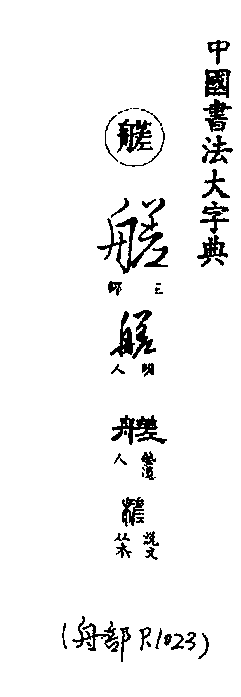 中國書法大字典
艖
艖
王師
艖
明人
艖
人
艖
說文
(舟部 P.1023)